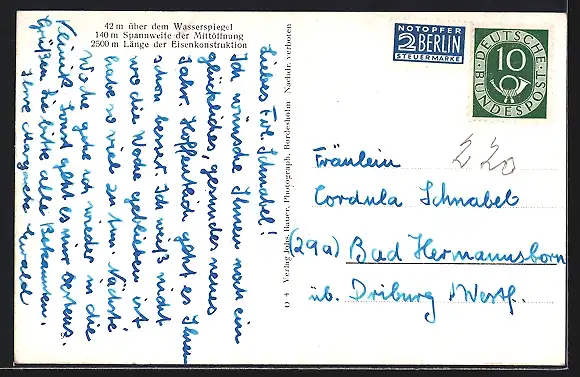 42 m über dem Wasserspiegel
140 m Spannweite der Mittöffnung
2500 m Länge der Eisenkonstruktion
Liebes Frl. Schnabel!
Ich wünsche Ihnen noch ein
glückliches, gesundes neues
Jahr. Hoffentlich geht es Ihnen
schon besser. Ich weiß nicht
wo die Woche geblieben ist
habe so viel zu tun. Nächste
Woche gehe ich wieder in die
Klinik. Sonst geht es mir bestens.
Grüßen Sie bitte alle Bekannten.
Ihre Margarete Ewald
O 4 Verlag Johs. Rauer, Photograph, Bordesholm Nachdr. verboten
NOTOPFER
2 BERLIN
STEUERMARKE
DEUTSCHE
BUNDESPOST
10
220
Fräulein
Cordula Schnabel
(29a) Bad Hermannsborn
üb. Driburg /Westf.